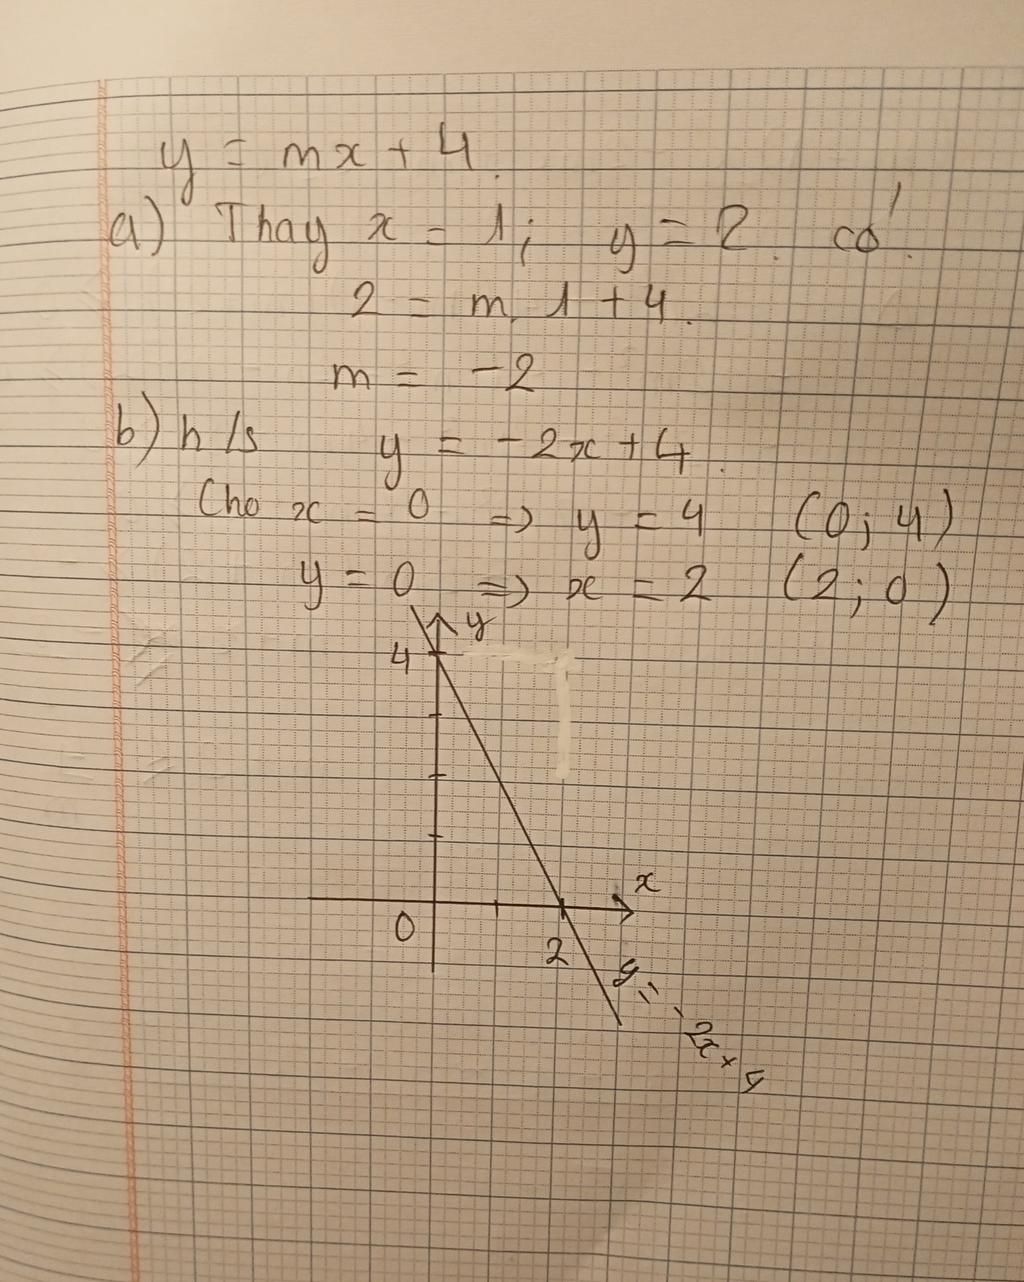 y = mx + 4.
a) Thay x = 1; y = 2. có.
2 = m. 1 + 4.
m = -2
b) h/s y = -2x + 4.
Cho x = 0 => y = 4 (0; 4)
y = 0 => x = 2 (2; 0)
y
4
x
0
2
y = -2x + 4